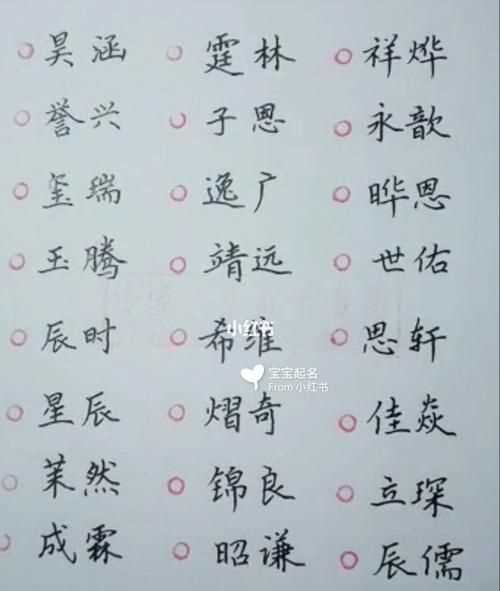 昊涵 霆林 祥烨
誉兴 子恩 永歆
玺瑞 逸广 晔恩
玉腾 靖远 世佑
辰时 希维 思轩
小红书
宝宝起名
From 小红书
星辰 熠奇 佳焱
茉然 锦良 立琛
成霖 昭谦 辰儒